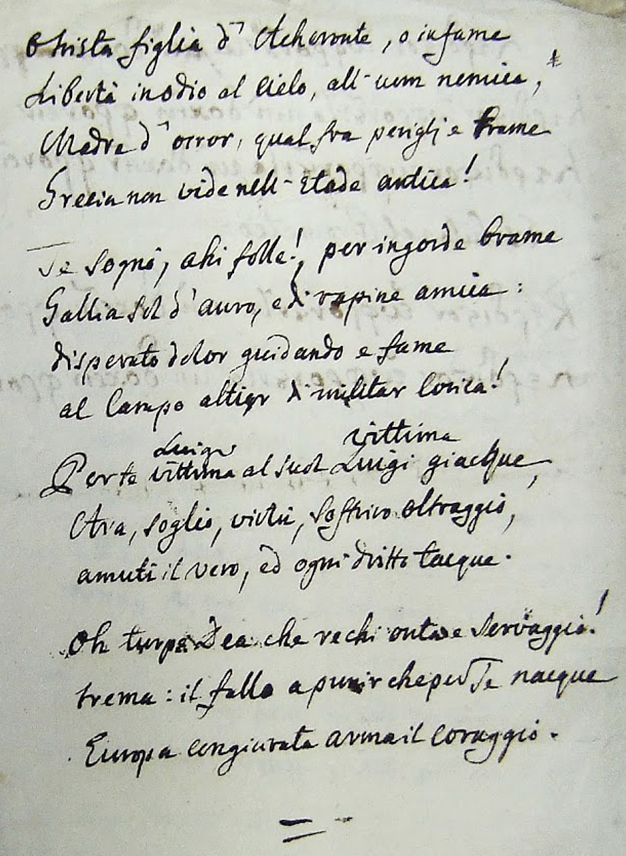 O trista figlia d'Acheronte, o infame
Libertà in odio al Cielo, all'uom nemica,
Madre d'orror, qual fra perigli e trame
Grecia non vide nell'Etade antica!
Te sognò, ahi folle!, per ingorde brame
Gallia sol d'auro, e di rapine amica:
disperato dolor guidando e fame
al Campo altier di militar lorica!
Luigi vittima
Per te vittima al suol Luigi giacque,
Ara, soglio, virtù, soffriro oltraggio,
amutì il vero, ed ogni dritto tacque.
Oh turpe Dea che rechi onta e servaggio!
trema: il fallo a punir che per Te nacque
Europa congiurata arma il coraggio.